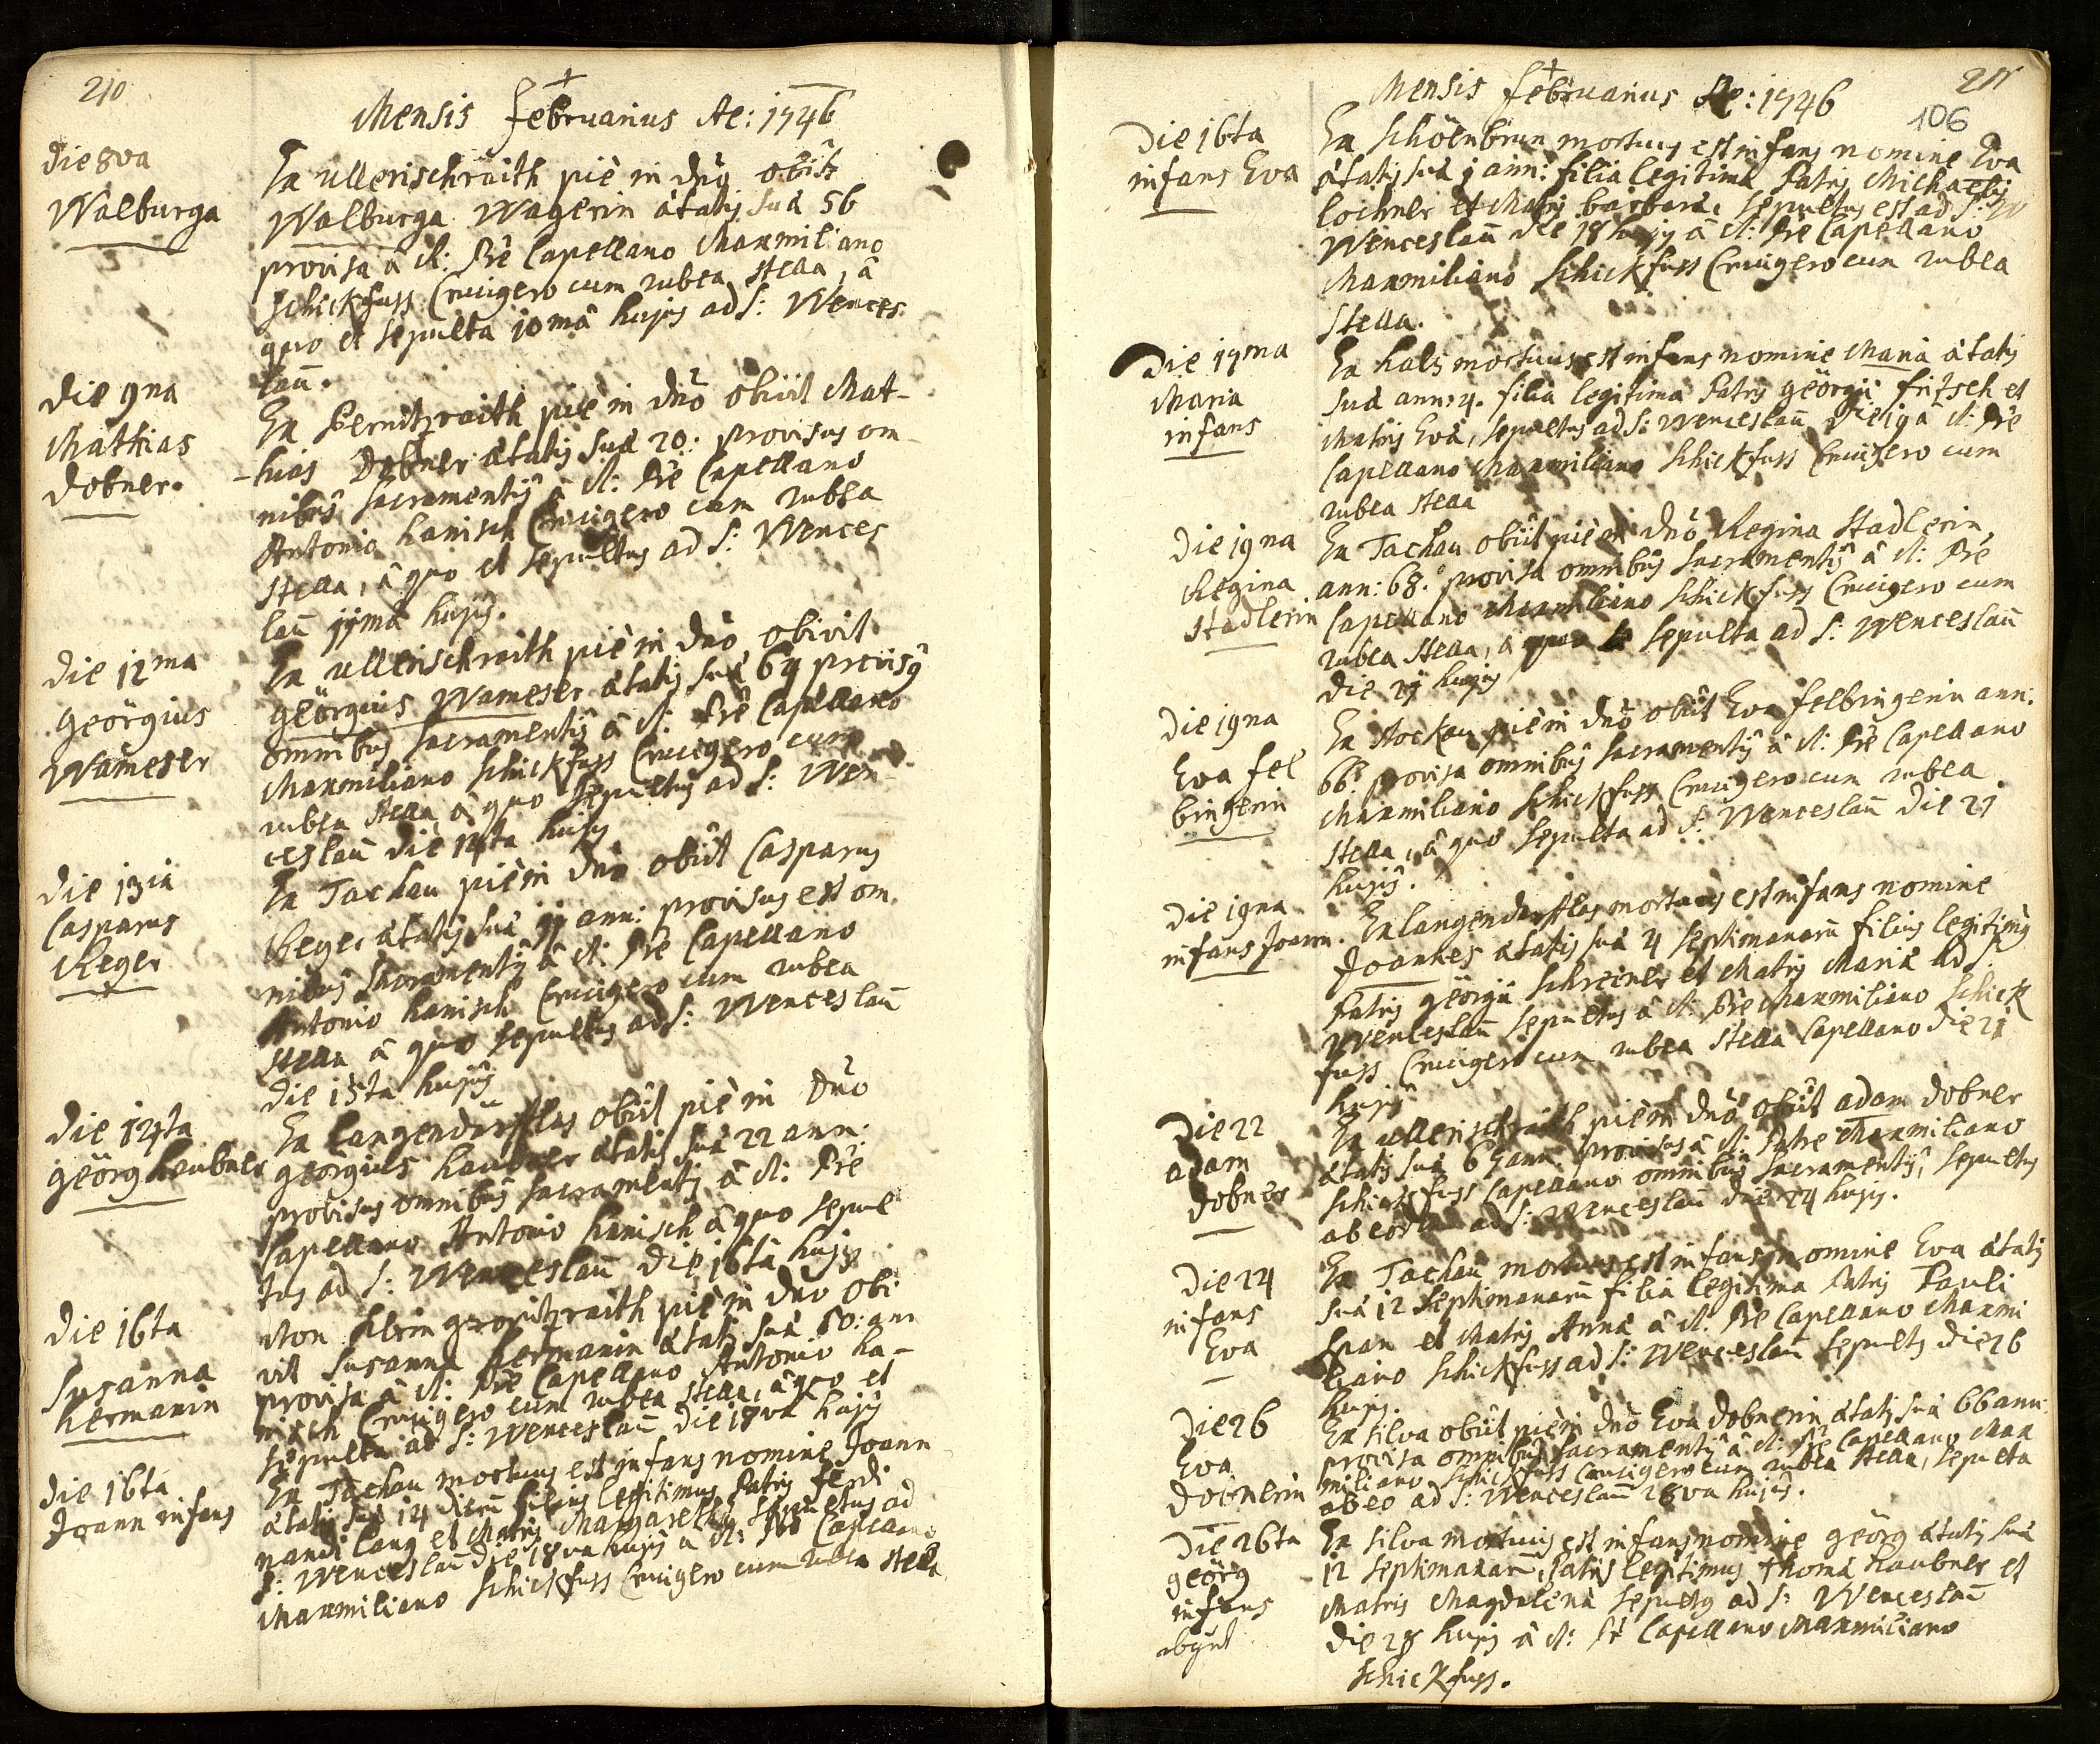 210
Mensis Februarius Ae: 1746
Die 8va
Walburga
Ex Ullerischraith piè in dnō obiit
Walburga Wagerin ætatis suæ 56
provisa â A: Pre Capellano Maxmiliano
Schickfuss Crucigero cum rubea stella, â
quo et sepulta 10mâ hujus ad S: Wences
laū.
Die 9na
Mathias
Dobner.
Ex Berntzraith piè in dnō obivit Mat-
-hias Dobner ætatis suæ 20: provisus om
nibus Sacramentis â A: Pre Capellano
Antonio Hanisch Crucigero cum rubea
stella, â quo et sepultus ad S: Wences
laū 11mâ hujus.
Die 12ma
Geörgius
Wameser
Ex Ullerischraith piè in dnō obivit
Geörgius Wameser ætatis suæ 64 provisus
omnibus Sacramentis â A: Pre Capellano
Maxmiliano Schickfuss Crucigero cum
rubea stella â quo sepultus ad S: Wen-
ceslaū die 14ta hujus
Die 13ia
Casparus
Reger
Ex Tachau piè in dnō obiit Casparus
Reger ætatis suæ ann: provisus est om
nibus Sacramentis â A: Pre Capellano
Antonio Hanisch Crucigero cum rubea
stella â quo sepultus ad S: Wenceslaū
die 15ta hujus
Die 14ta
Geörg Haubner
Ex Langendörfflas obiit piè in Dnō
Geörgius Haubner ætatis suæ 22 ann:
provisus omnibus Sacramentis â A: Pre
Capellano Antonio Hanisch â quo sepul
tus ad S: Wenceslaū die 16tâ hujus
Die 16ta
Susanna
Hermanin
Von Klein piè in dnō obi
vit Susanna Hermanin ætatis suæ 80: ann
provisa â A: Pre Capellano Antonio Ha-
nisch Crucigero cum rubea stella, â quo et
sepulta ad S: Wenceslaū die 18va hujus
Die 16ta
Joann infans
Ex Tachau mortuus est infans nomine Joann
ætatis suæ 14 dierū filius legitimus Patris Ferdi
nandi Lang et Matris Margarethæ sepultus ad
S: Wenceslaū die 18va hujus â A: Pre Capellano
Maxmiliano Schickfuss Crucigero cum rubea stella
211
106
Mensis Februarius Ae: 1746
Die 16ta
infans Eva
Ex Schöenbrun mortuus est infans nomine Eva
ætatis suæ 1 ann: filia legitima Patris Michaelis
Lochner et Matris Barbaræ, sepultus est ad S:
Wenceslaū die 18 hujus â A: Pre Capellano
Maxmiliano Schickfuss Crucigero cum rubea
stella.
Die 17ma
Maria
infans
Ex Hals mortuus est infans nomine Maria ætatis
suæ ann: 4. filia legitima Patris Geörgii Fritsch et
Matris Evæ, sepultus ad S: Wenceslaū die 19 â A: Pre
Capellano Maxmiliano Schickfuss Crucigero cum
rubea stella
Die 19na
Regina
Stadlerin
Ex Tachau obiit piè in dnō Regina Stadlerin
ann: 68. provisa omnibus Sacramentis â A: Pre
Capellano Maxmiliano Schickfuss Crucigero cum
rubea stella, â quo sepulta ad S: Wenceslaū
die 21 hujus
Die 19na
Eva Fel
bingerin
Ex Stockau piè in dnō obiit Eva Felbingerin ann:
66. provisa omnibus Sacramentis â A: Pre Capellano
Maxmiliano Schickfuss Crucigero cum rubea
stella, â quo sepulta ad S: Wenceslaū die 21
hujus.
Die 19na
infans Joann.
Ex Langendörfflas mortuus est infans nomine
Joannes ætatis suæ 4 septimanarū filius legitimus
Patris Geörgii Schreiner et Matris Mariæ ad S:
Wenceslaū sepultus â A: Pre Maxmiliano Schick
fuss Crucigero cum rubea stella Capellano die 21
hujus
Die 22
Adam
Dobner
Ex Ullerischraith piè in dnō obiit Adam Dobner
ætatis suæ 65 ann: provisus â A: Patre Maxmiliano
Schickfuss Capellano omnibus Sacramentis, sepultus
ab eodem ad S: Wenceslaū die 24 hujus.
Die 24
infans
Eva
Ex Tachau mortuus est infans nomine Eva ætatis
suæ 12 septimanarū filia legitima Patris Pauli
Span et Matris Annæ â A: Pre Capellano Maxmi
liano Schickfuss ad S: Wenceslaū sepults die 26
hujus.
Die 26
Eva
Dobnerin
Ex Silva obiit piè in dnō Eva Dobnerin ætatis suæ 66 ann:
provisa omnibus Sacramentis â A: Pre Capellano Max
miliano Schickfuss Crucigero cum rubea stella, sepulta
ab eo ad S: Wenceslaū 28va hujus.
Die 26ta
Geörg
infans
Ex Silva mortuus est infans nomine Geörg ætatis suæ
12 septimanarū, Patris legitimus Thomæ Haubner et
Matris Magdalenæ sepultus ad S: Wenceslaū
die 28 hujus â A: Pe Capellano Maxmiliano
Schickfuss.